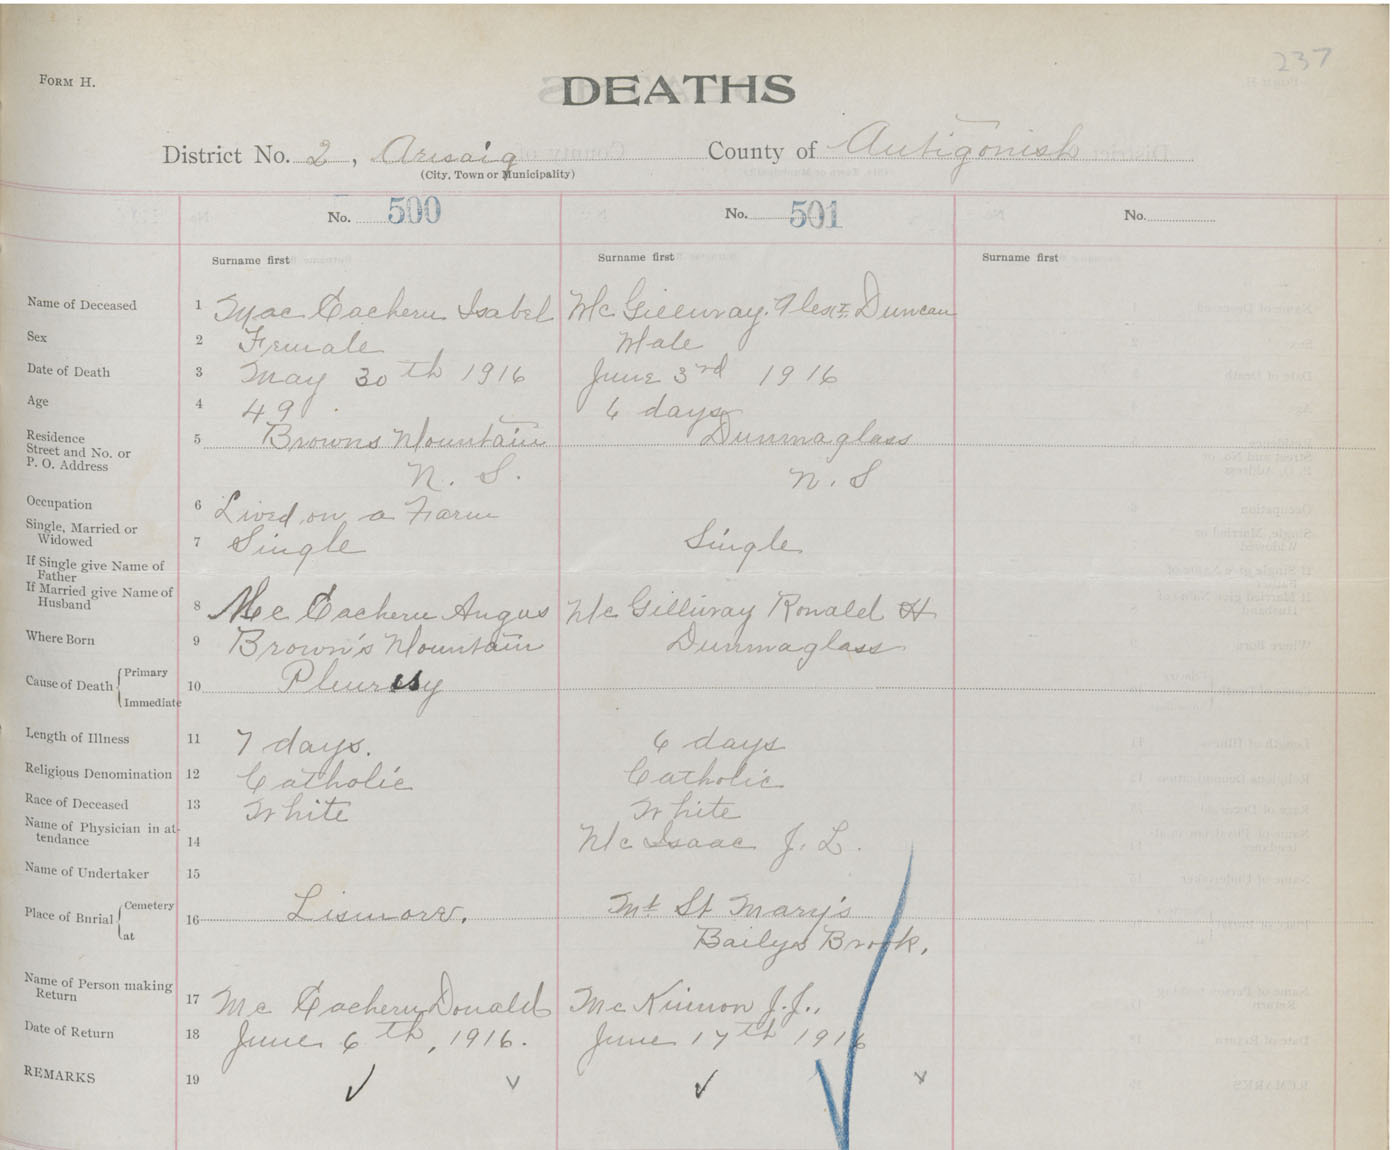 237
FORM H.
DEATHS
District No. 2, Arisaig County of Antigonish
(City, Town or Municipality)
No. 500 No. 501 No.
Surname first Surname first Surname first
Name of Deceased 1 Mac Eachern Isabel Mc Gillivray Alexr. Duncan
Sex 2 Female Male
Date of Death 3 May 30th 1916 June 3rd 1916
Age 4 49 6 days
Residence Street and No. or P. O. Address 5 Browns Mountain Dunmaglass
N. S. N. S
Occupation 6 Lived on a Farm
Single, Married or Widowed 7 Single Single
If Single give Name of Father
If Married give Name of Husband 8 Mc Eachern Angus Mc Gillivray Ronald H
Where Born 9 Brown's Mountain Dunmaglass
Cause of Death Primary Immediate 10 Pleurisy
Length of Illness 11 7 days. 6 days
Religious Denomination 12 Catholic Catholic
Race of Deceased 13 White White
Name of Physician in attendance 14 Mc Isaac J. L.
Name of Undertaker 15
Place of Burial Cemetery at 16 Lismore. Mt St Mary's
Bailys Brook.
Name of Person making Return 17 Mc Eachern Donald Mc Kinnon J. J.,
Date of Return 18 June 6th, 1916. June 17th 1916
REMARKS 19